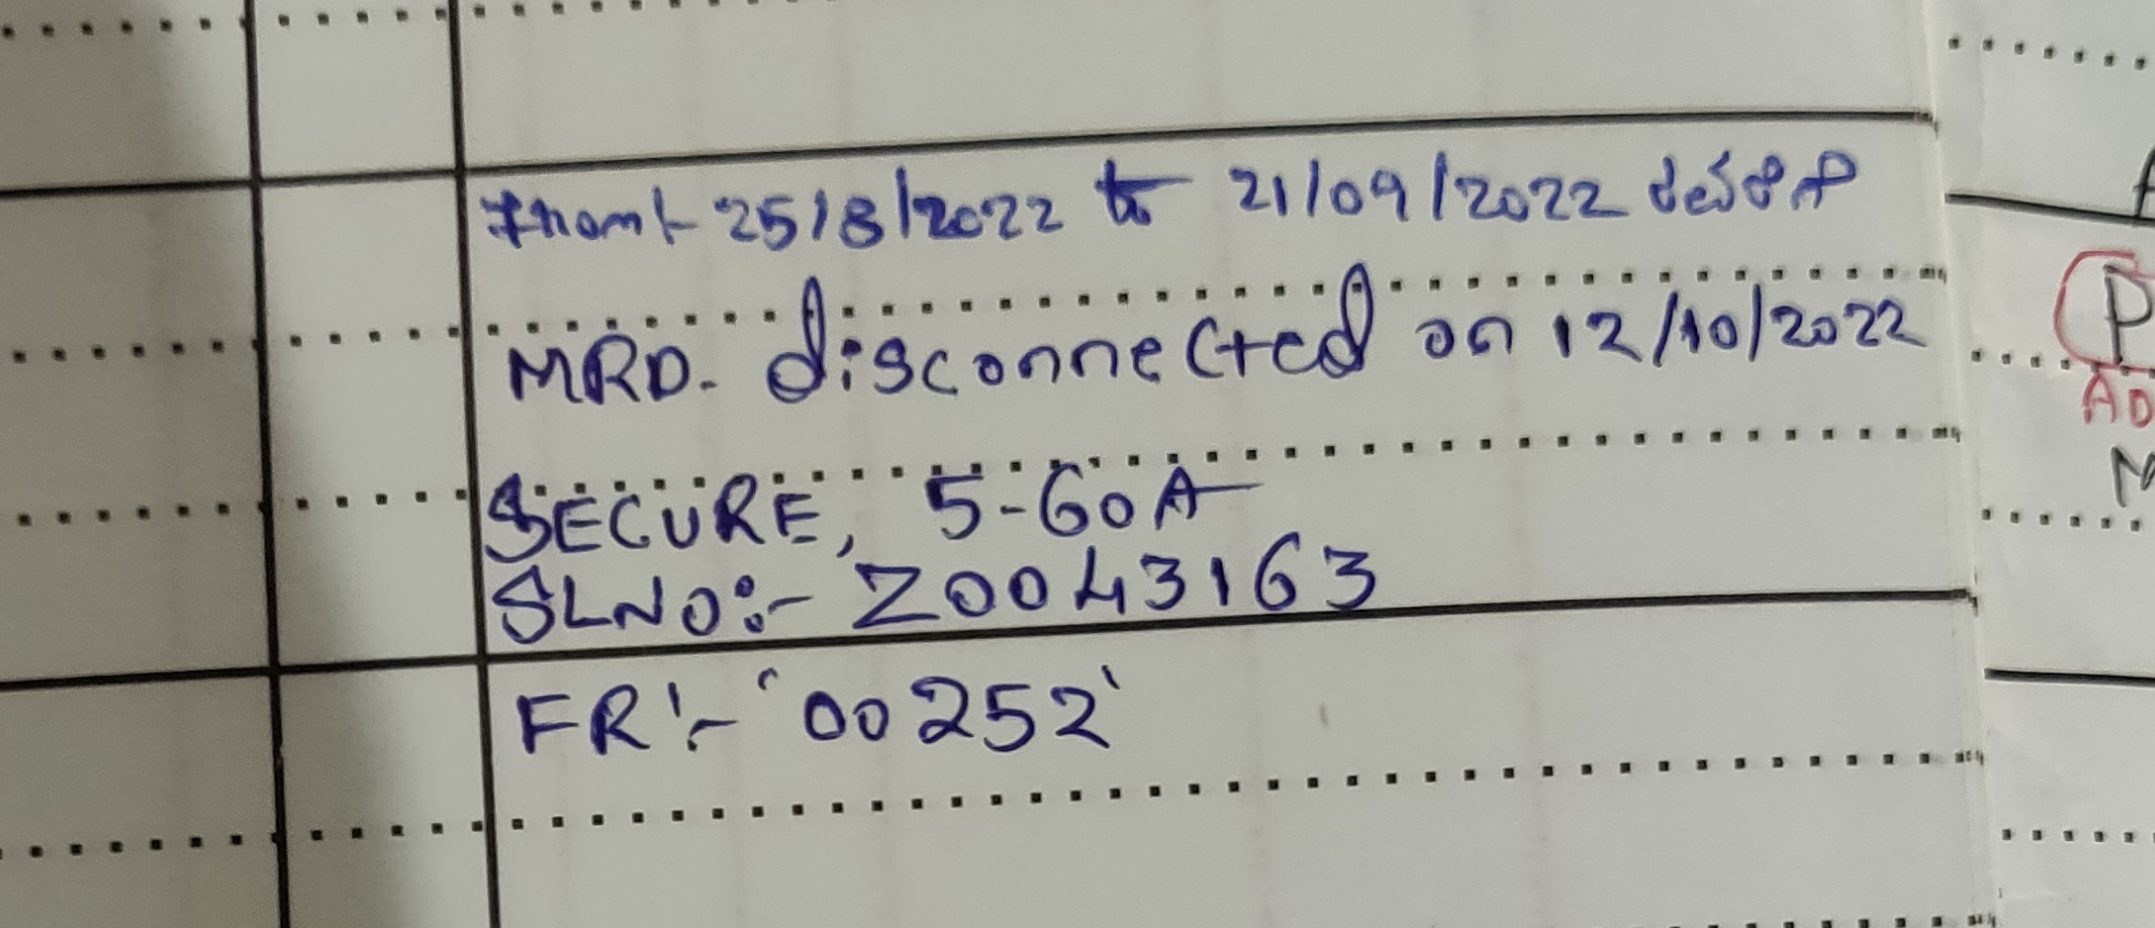 from 25/8/2022 to 21/09/2022
MRD. disconnected on 12/10/2022
SECURE, 5-60A
SLNO:- Z0043163
FR:- '00252'
P
AD